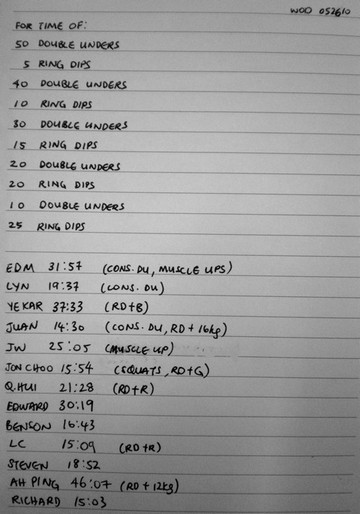 WOD 052610
FOR TIME OF:
50 DOUBLE UNDERS
5 RING DIPS
40 DOUBLE UNDERS
10 RING DIPS
30 DOUBLE UNDERS
15 RING DIPS
20 DOUBLE UNDERS
20 RING DIPS
10 DOUBLE UNDERS
25 RING DIPS
EDM 31:57 (CONS. DU, MUSCLE UPS)
LYN 19:37 (CONS. DU)
YEKAR 37:33 (RD+B)
JUAN 14:30 (CONS. DU, RD + 16kg)
JW 25:05 (MUSCLE UP)
JON CHOO 15:54 (SQUATS, RD+G)
Q.HUI 21:28 (RD+R)
EDWARD 30:19
BENSON 16:43
LC 15:09 (RD+R)
STEVEN 18:52
AH PING 46:07 (RD + 12kg)
RICHARD 15:03